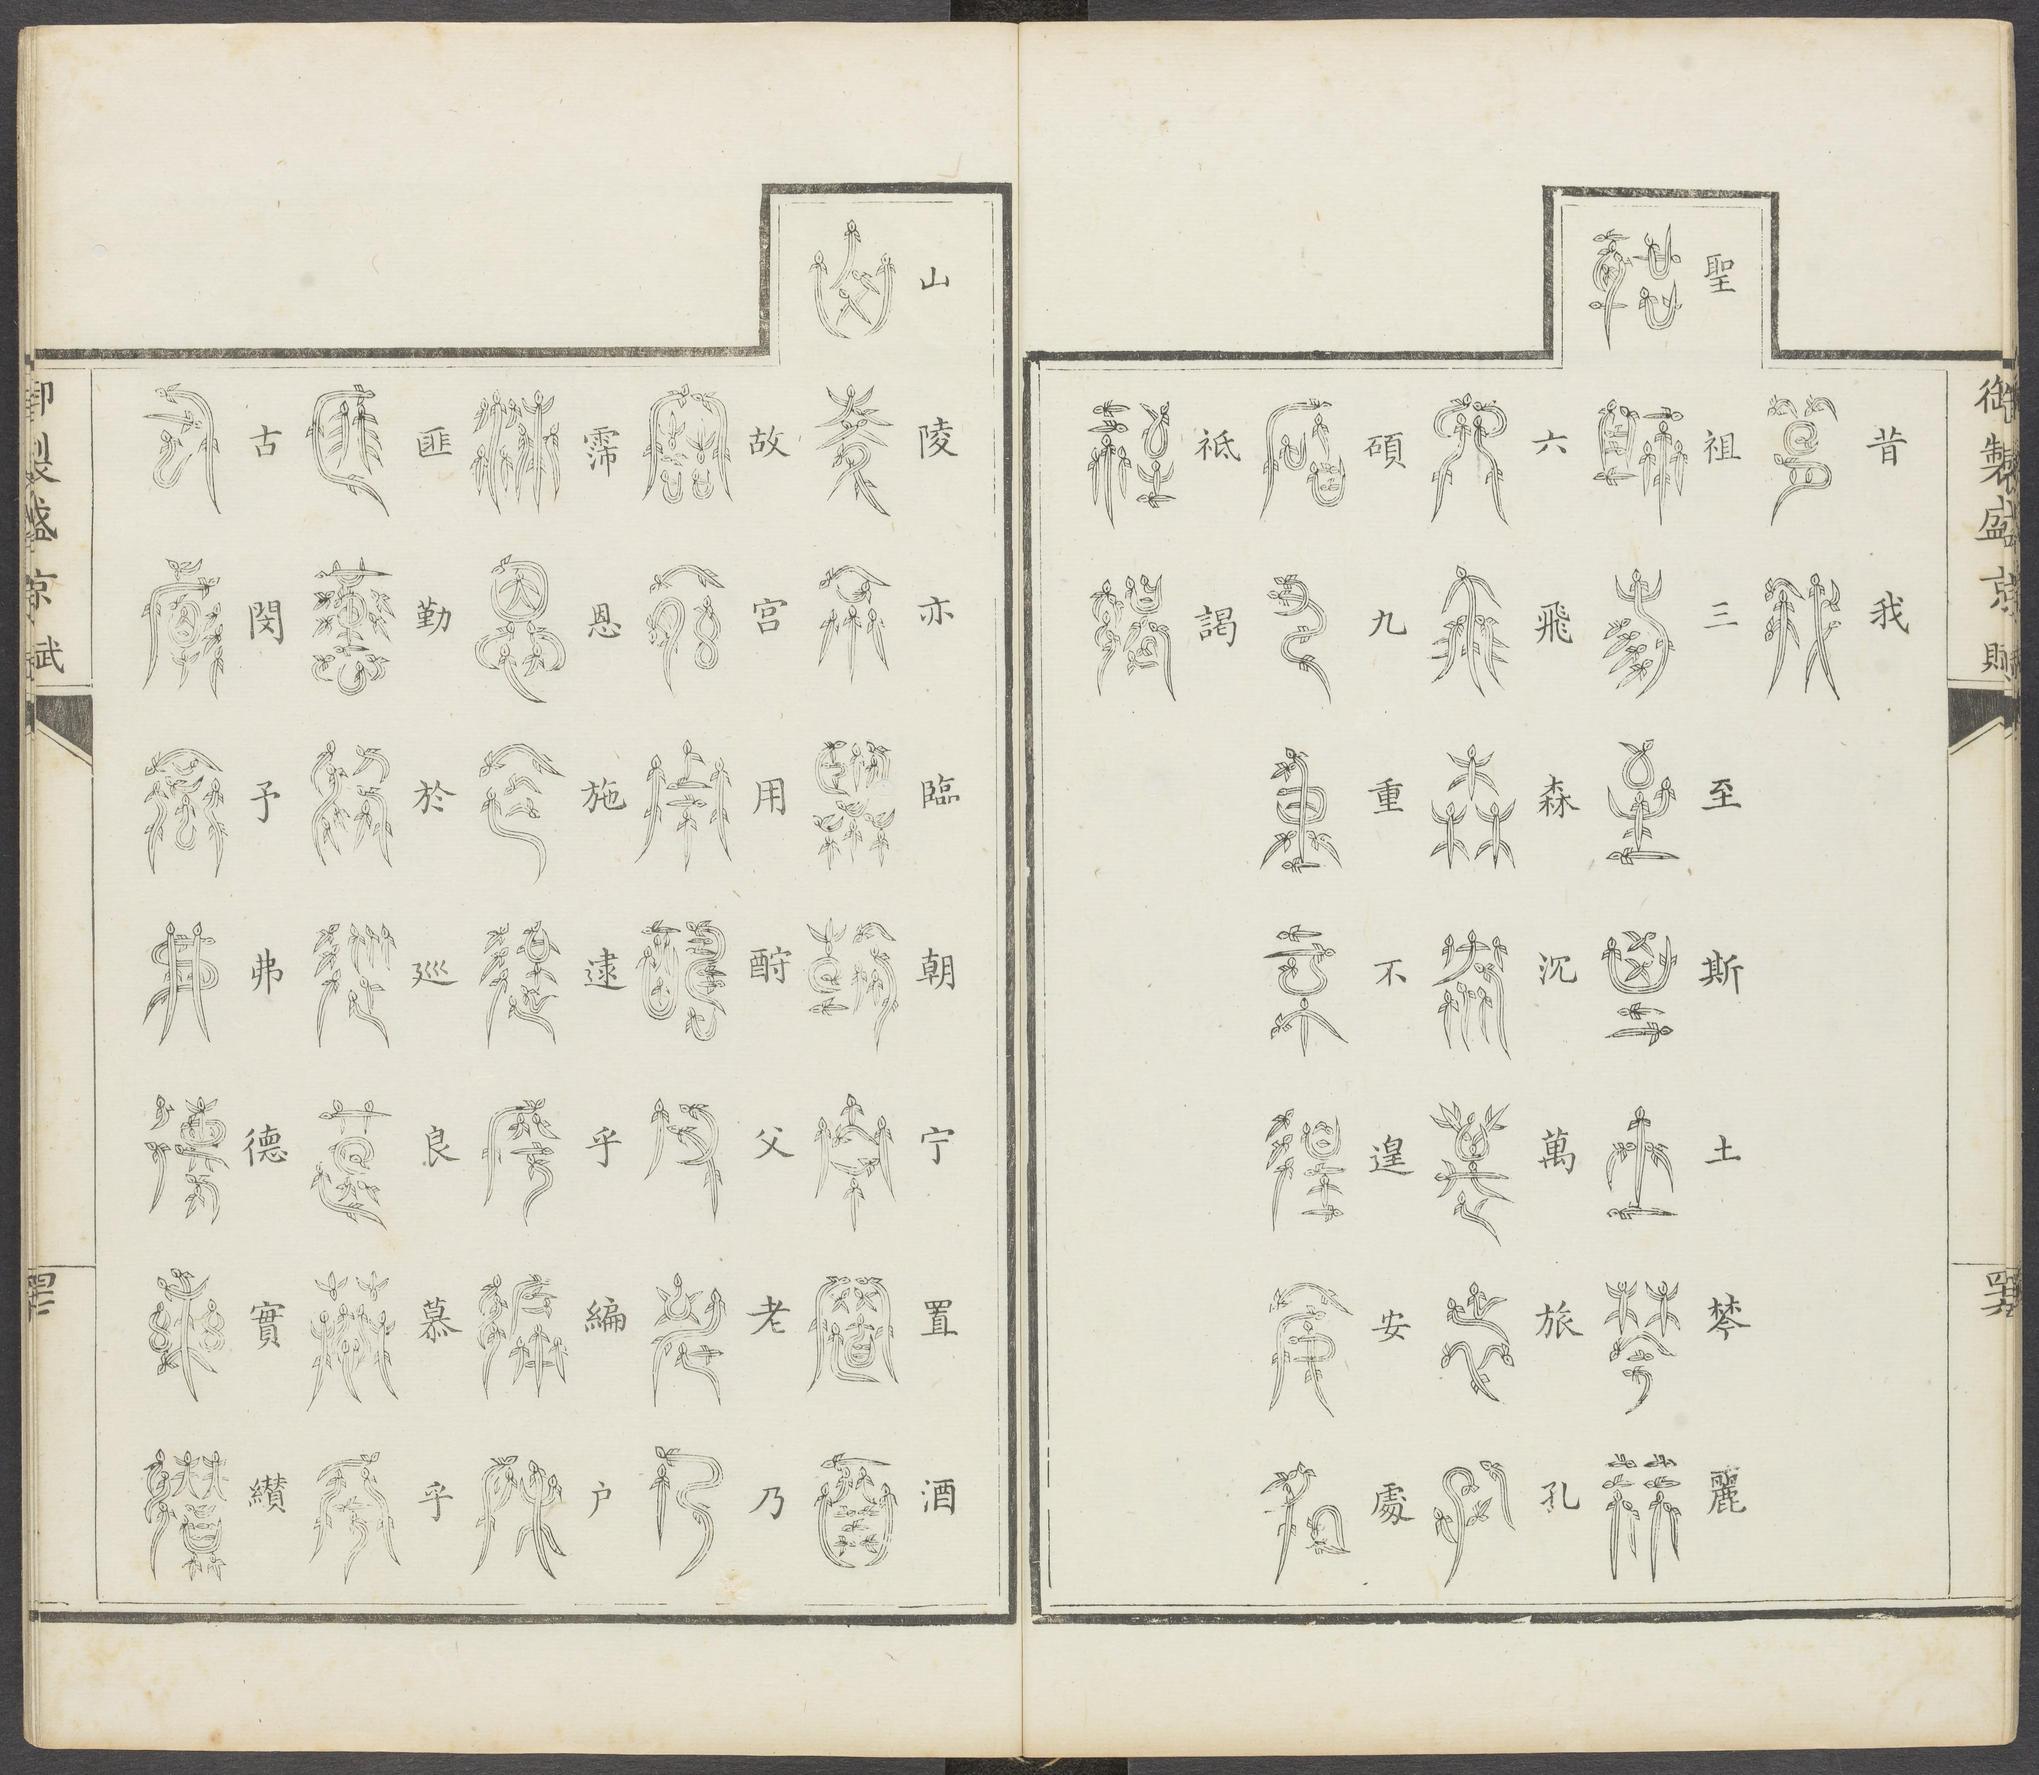 御製盛京賦
昔我
聖祖三至斯土棽麗
六飛森沉萬旅孔
碩九重不遑安處
祗謁
山陵亦臨朝宁置酒
故宮用酧父老乃
霈恩施逮乎編户
匪勤於廵良慕乎
古閔予弗德實纘
御製盛京賦